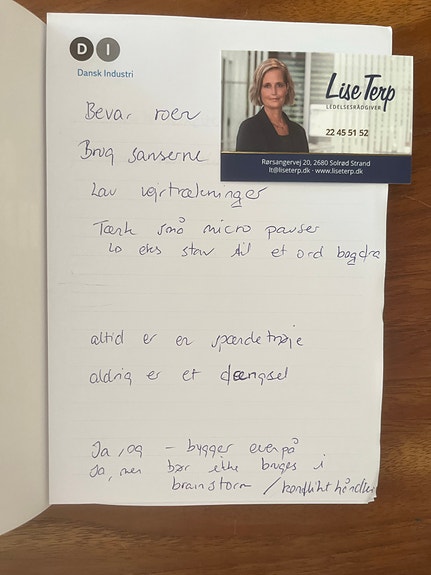 D I
Dansk Industri
Lise Terp
LEDELSESRÅDGIVER
22 45 51 52
Rørsangervej 20, 2680 Solrød Strand
lt@liseterp.dk · www.liseterp.dk
Bevar roen
Brug sanserne
Lav vejrtrækninger
Tænk små micro pauser
Lo eks stav til et ord bagfra
altid er en spændetrøje
aldrig er et fængsel
Ja, og - bygger ovenpå
Ja, men bør ikke bruges i
brainstorm / konflikt